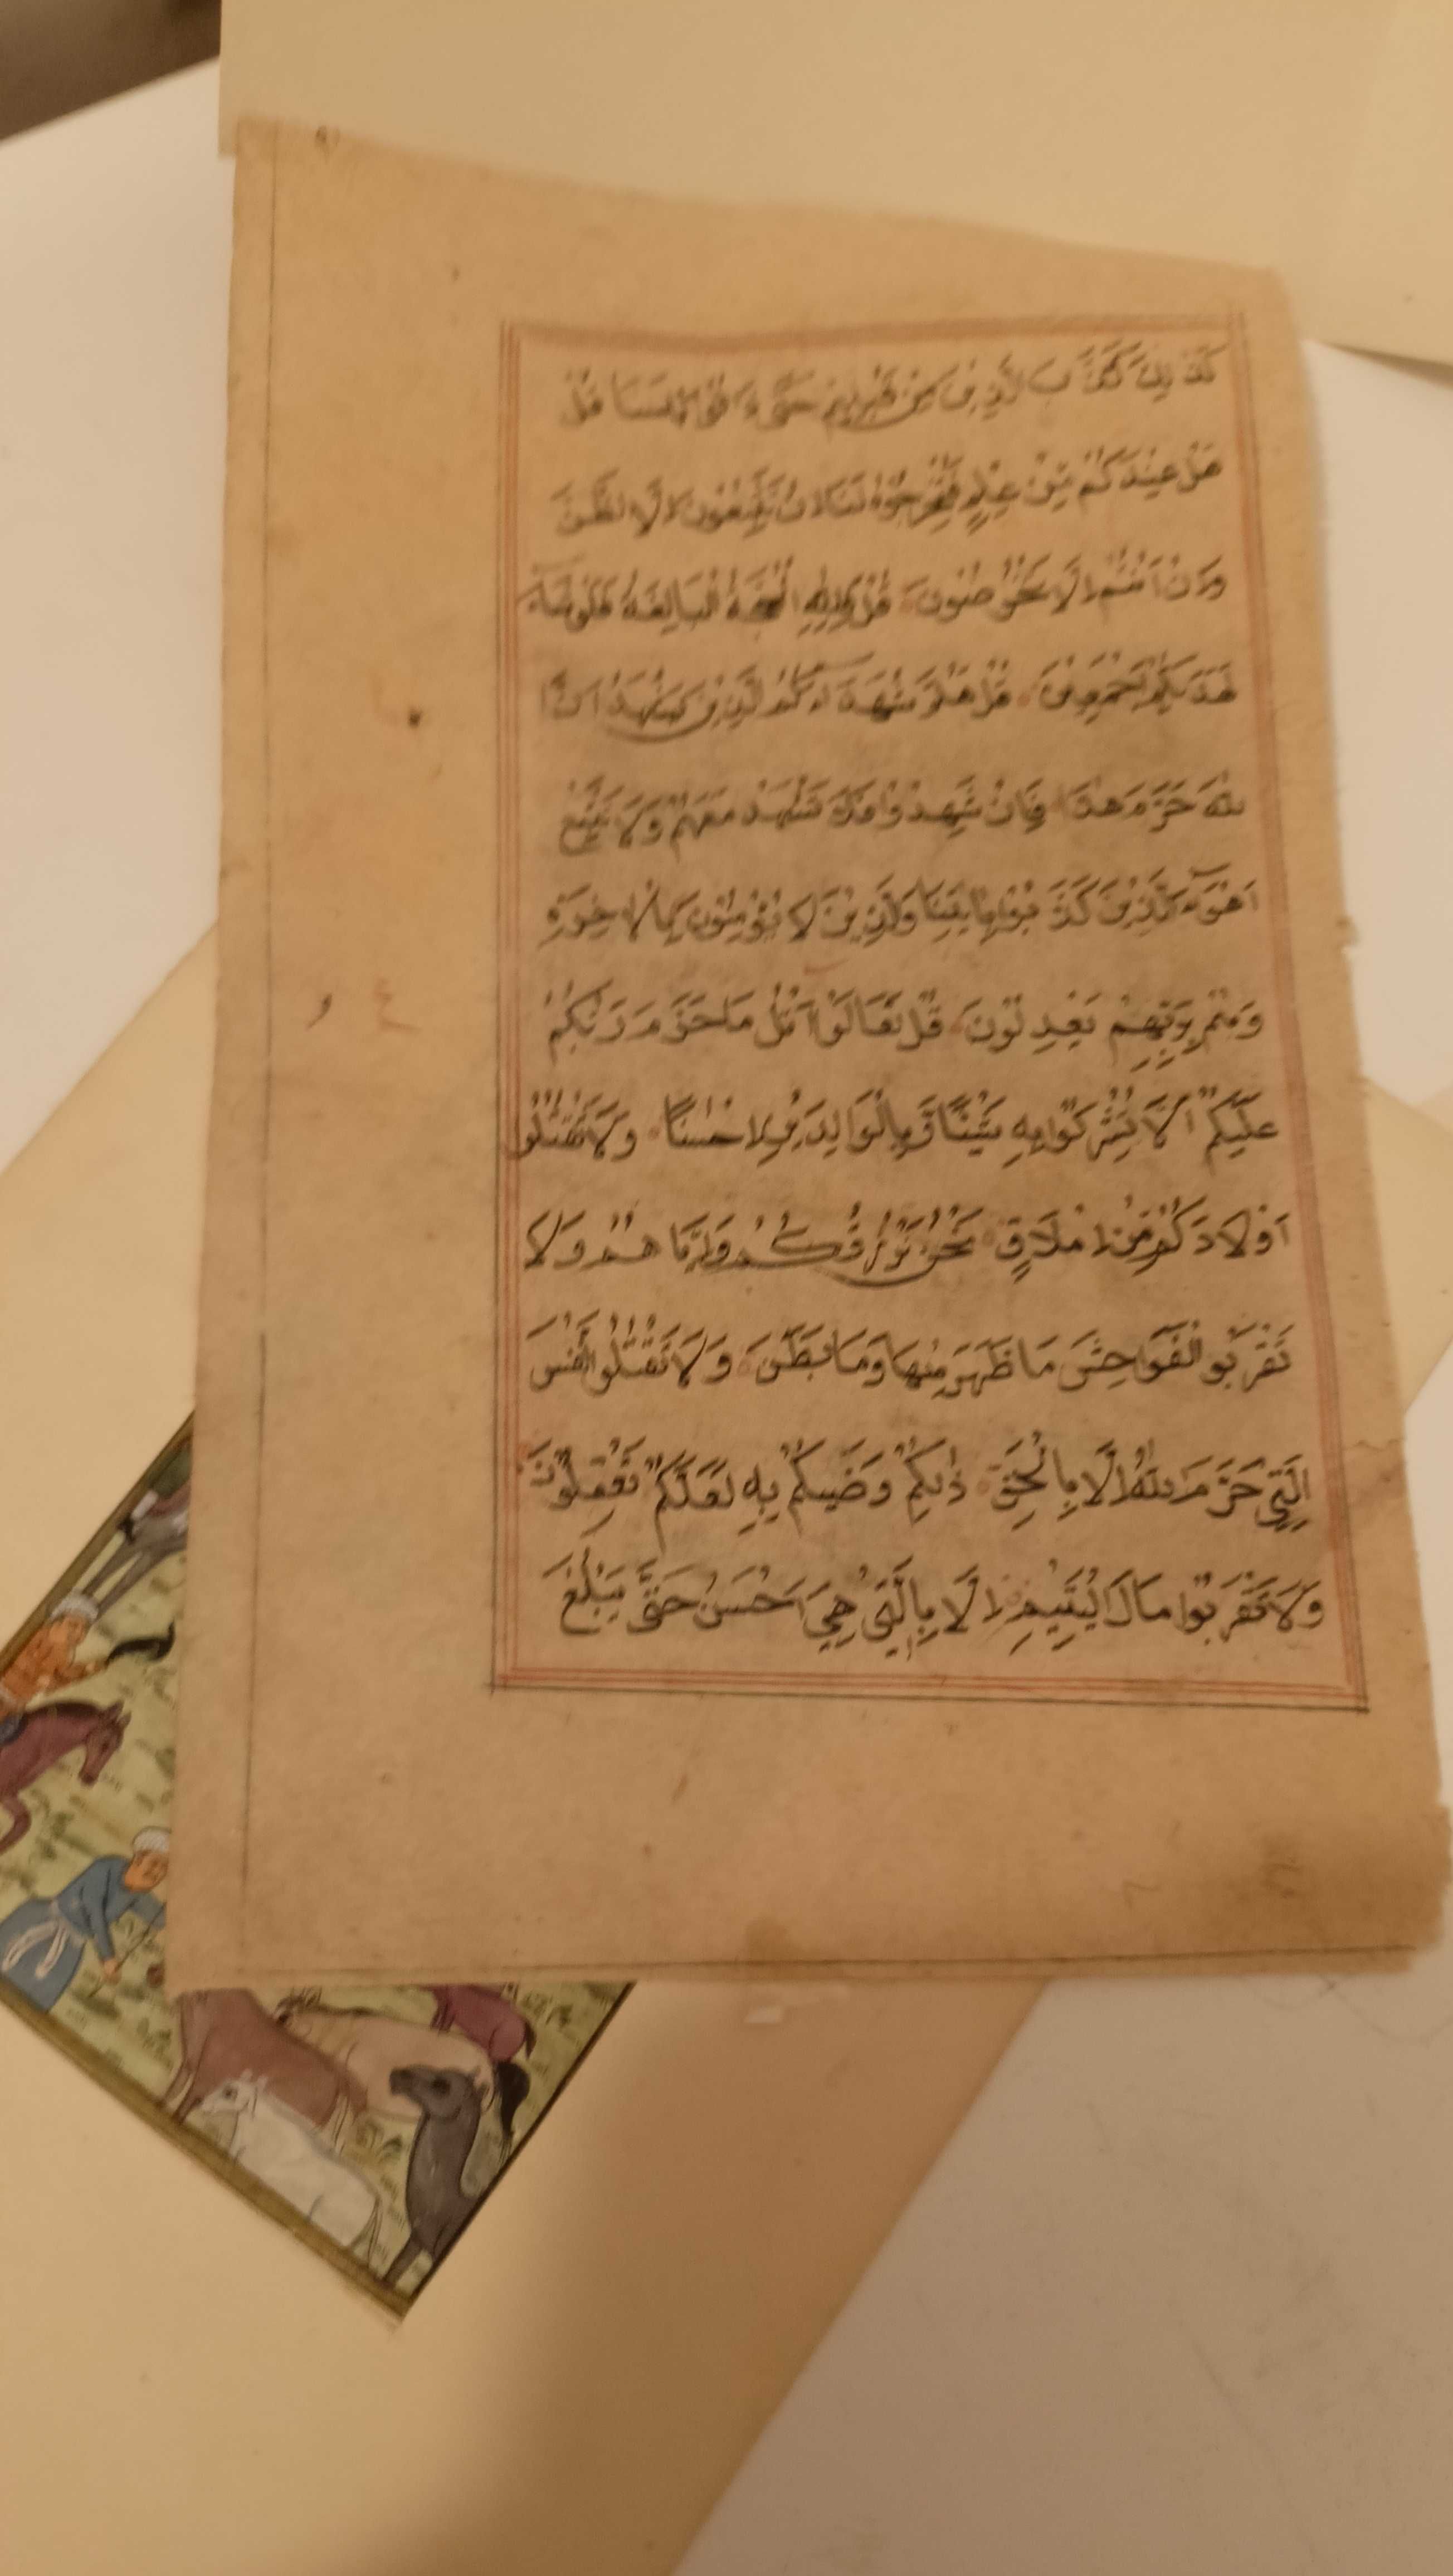 كَذٰلِكَ كَذَّبَ الَّذِينَ مِنْ قَبْلِهِمْ حَتّٰى ذَاقُوا بَاْسَنَا قُلْ
هَلْ عِنْدَكُمْ مِنْ عِلْمٍ فَتُخْرِجُوهُ لَنَا اِنْ تَتَّبِعُونَ اِلَّا الظَّنَّ
وَاِنْ اَنْتُمْ اِلَّا تَخْرُصُونَ قُلْ فَلِلّٰهِ الْحُجَّةُ الْبَالِغَةُ فَلَوْ شَاءَ
لَهَدٰيكُمْ اَجْمَعِينَ قُلْ هَلُمَّ شُهَدَاءَكُمُ الَّذِينَ يَشْهَدُونَ اَنَّ
اللّٰهَ حَرَّمَ هٰذَا فَاِنْ شَهِدُوا فَلَا تَشْهَدْ مَعَهُمْ وَلَا تَتَّبِعْ
اَهْوَاءَ الَّذِينَ كَذَّبُوا بِاٰيٰتِنَا وَالَّذِينَ لَا يُؤْمِنُونَ بِالْاٰخِرَةِ
وَهُمْ بِرَبِّهِمْ يَعْدِلُونَ قُلْ تَعَالَوْا اَتْلُ مَا حَرَّمَ رَبُّكُمْ
عَلَيْكُمْ اَلَّا تُشْرِكُوا بِهِ شَيْئًا وَبِالْوَالِدَيْنِ اِحْسٰنًا وَلَا تَقْتُلُوا
اَوْلَادَكُمْ مِنْ اِمْلَاقٍ نَحْنُ نَرْزُقُكُمْ وَاِيَّاهُمْ وَلَا
تَقْرَبُوا الْفَوَاحِشَ مَا ظَهَرَ مِنْهَا وَمَا بَطَنَ وَلَا تَقْتُلُوا النَّفْسَ
الَّتِي حَرَّمَ اللّٰهُ اِلَّا بِالْحَقِّ ذٰلِكُمْ وَصّٰيكُمْ بِهِ لَعَلَّكُمْ تَعْقِلُونَ
وَلَا تَقْرَبُوا مَالَ الْيَتِيمِ اِلَّا بِالَّتِي هِيَ اَحْسَنُ حَتّٰى يَبْلُغَ